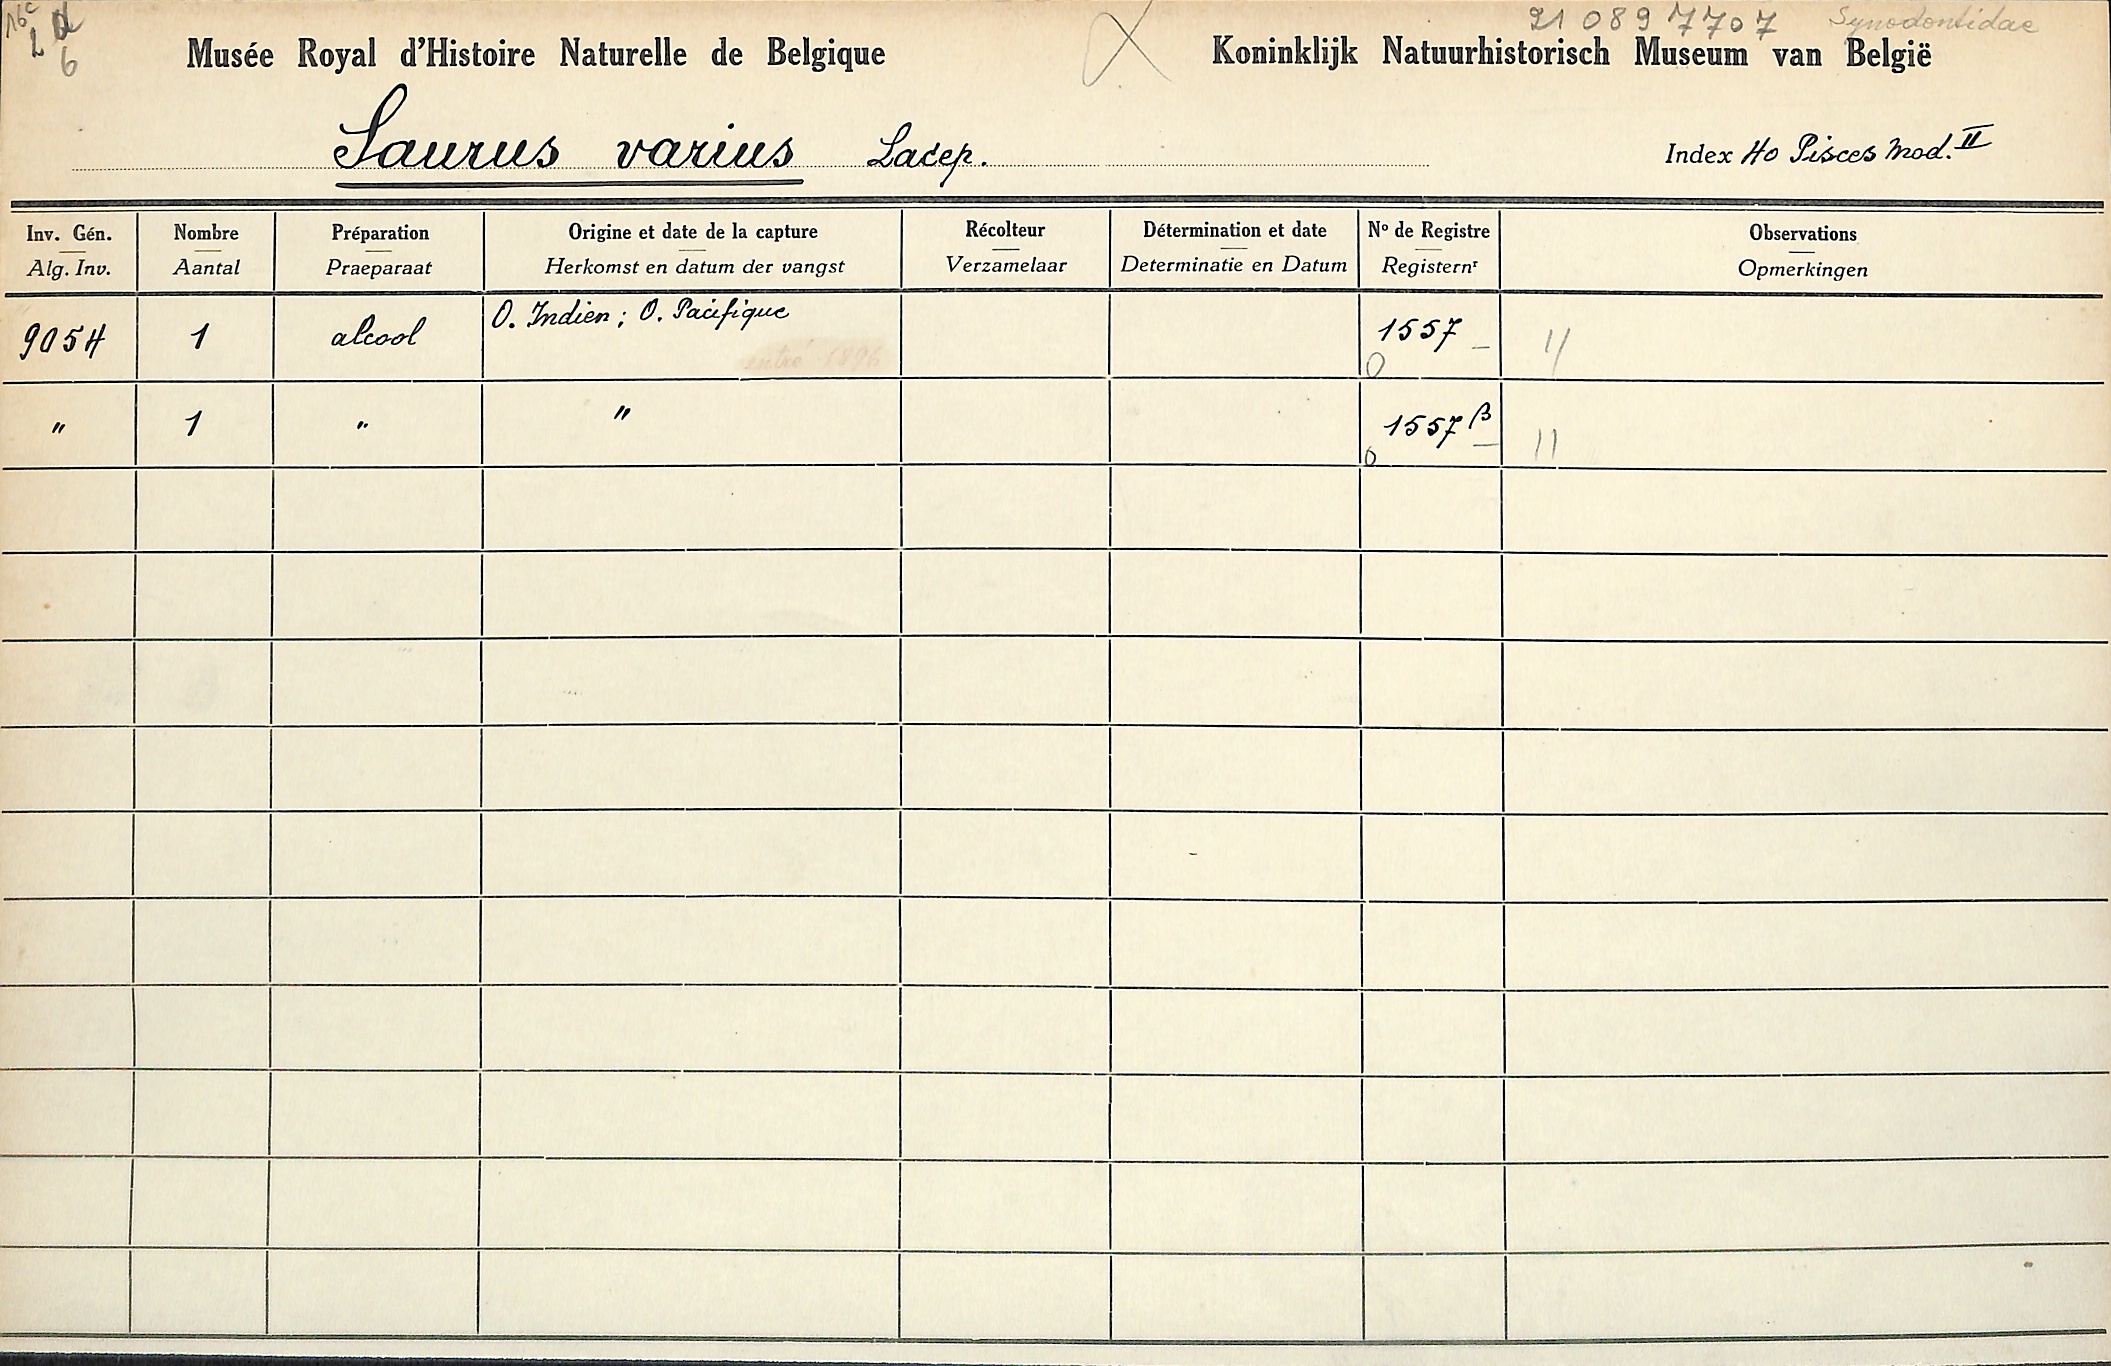 16c
2 d
6
21 089 7707 Synodontidae
Musée Royal d'Histoire Naturelle de Belgique
Koninklijk Natuurhistorisch Museum van België
Saurus varius Lacép.
Index 40 Pisces Mod. II
Inv. Gén. Nombre Préparation Origine et date de la capture Récolteur Détermination et date Nº de Registre Observations
Alg. Inv. Aantal Praeparaat Herkomst en datum der vangst Verzamelaar Determinatie en Datum Registernr Opmerkingen
9054 1 alcool O. Indien ; O. Pacifique 1557 - 11
entré 1896
0
" 1 " " 1557 β 11
0